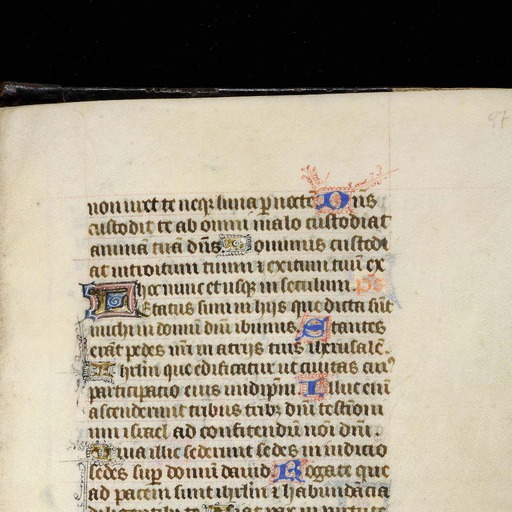 non uret te neqȝ luna ꝑ noctē. Dns
custodit te ab omni malo custodiat
animam tuā dn̄s. Dominus custodi
at introitum tuum ⁊ exitum tuū ex
hoc nunc et usqȝ in seculum. ps
Letatus sum in hijs que dicta sūt
michi in domū dn̄i ibimus. Stantes
erāt pedes nr̄i in atrijs tuis iherusalē.
Iherlm̄ que edificatur ut ciuitas cuiꝰ
participatio eius in idip̄m. Illuc eni
ascenderunt tribus tribꝫ dn̄i testīom
um israel ad confitendū noī dn̄i.
Quia illic sederunt sedes in iudicio
sedes sup̄ domū dauid. Rogate que
ad pacem sunt ihrlm̄ ⁊ habundācia
diligentibꝫ te. Fiat pax in uirtute